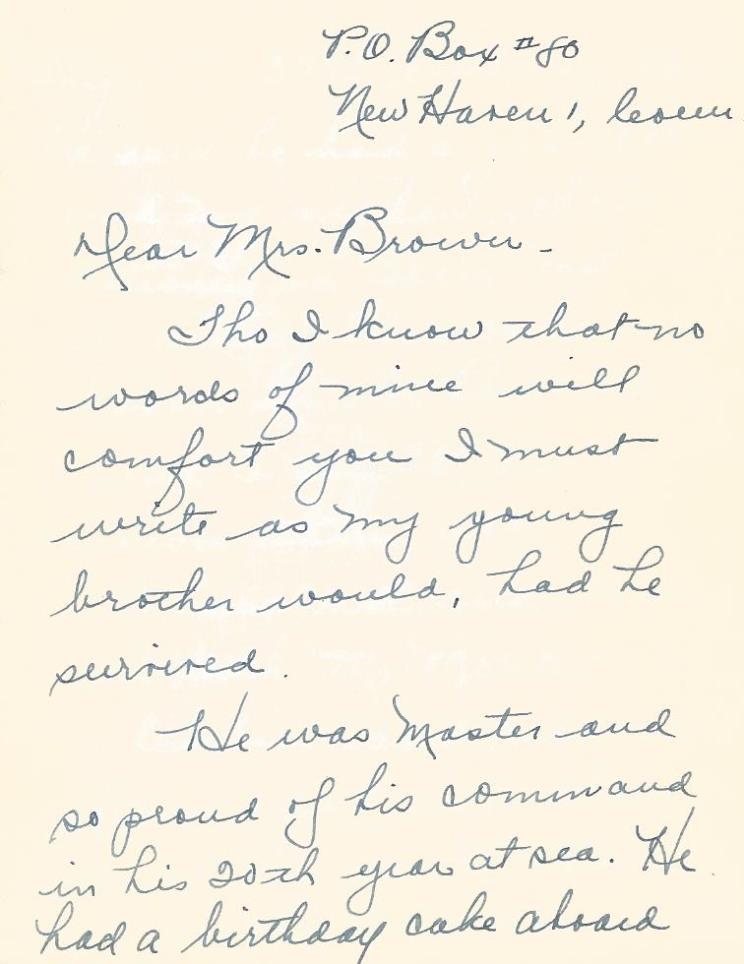 P.O. Box #80
New Haven 1, Conn
Dear Mrs. Brown -
Tho I know that no
words of mine will
comfort you I must
write as my young
brother would, had he
survived.
He was Master and
so proud of his command
in his 20th year at sea. He
had a birthday cake aboard